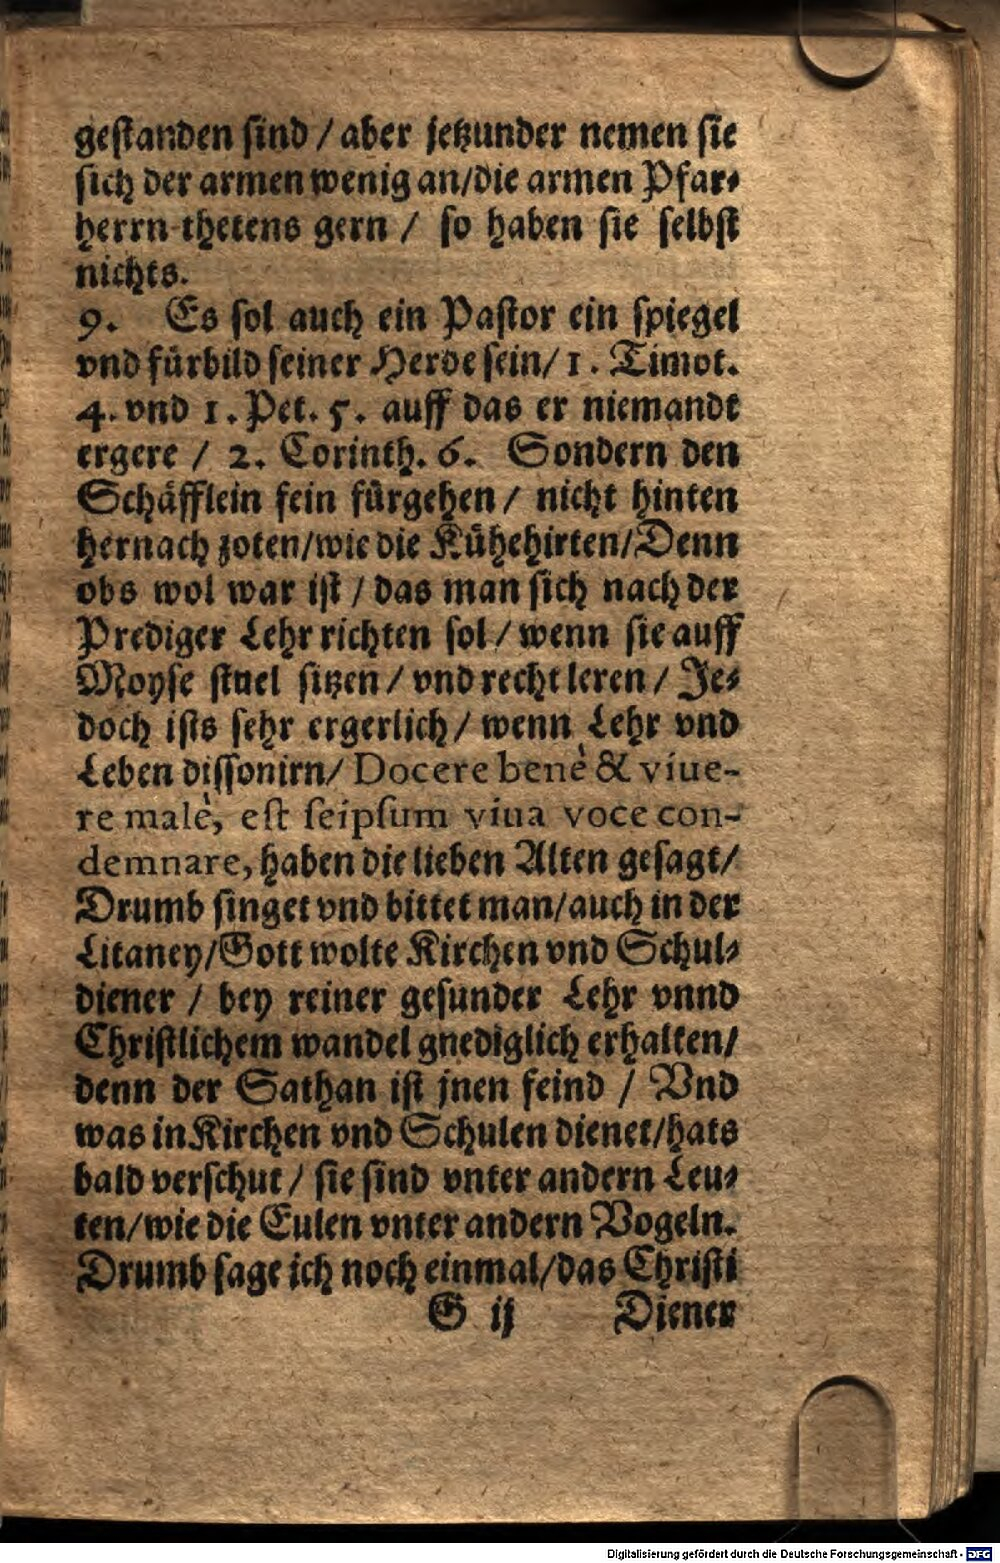 gestanden sind / aber jetzunder nemen sie
sich der armen wenig an/die armen Pfar⸗
herrn thetens gern / so haben sie selbst
nichts.
9. Es sol auch ein Pastor ein spiegel
vnd fürbild seiner Herde sein/ 1. Timot.
4. vnd 1. Pet. 5. auff das er niemandt
ergere / 2. Corinth. 6. Sondern den
Schäfflein fein fürgehen / nicht hinten
hernach zoten/wie die Kühehirten/Denn
obs wol war ist / das man sich nach der
Prediger Lehr richten sol / wenn sie auff
Moyse stuel sitzen / vnd recht leren / Je⸗
doch ists sehr ergerlich / wenn Lehr vnd
Leben dissonirn/ Docere benè & viue-
re malè, est seipsum viua voce con-
demnare, haben die lieben Alten gesagt/
Drumb singet vnd bittet man/auch in der
Litaney/Gott wolte Kirchen vnd Schul⸗
diener / bey reiner gesunder Lehr vnnd
Christlichem wandel gnediglich erhalten/
denn der Sathan ist jnen feind / Vnd
was in Kirchen vnd Schulen dienet/hats
bald verschut / sie sind vnter andern Leu⸗
ten/wie die Eulen vnter andern Vogeln.
Drumb sage ich noch einmal/das Christi
G ij Diener
Digitalisierung gefördert durch die Deutsche Forschungsgemeinschaft - DFG